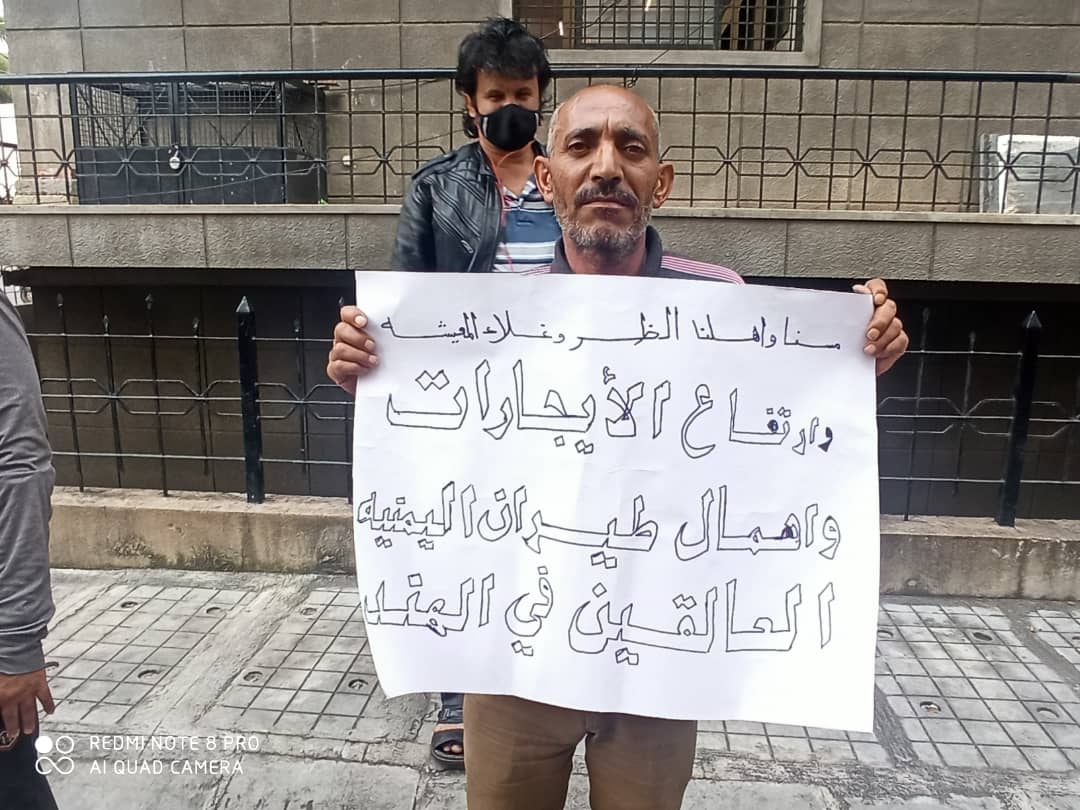 مسنا واهلنا الظر وغلاء المعيشه
وارتفاع الأيجارات
واهمال طيران اليمنيه
العالقين في الهند
REDMI NOTE 8 PRO
AI QUAD CAMERA